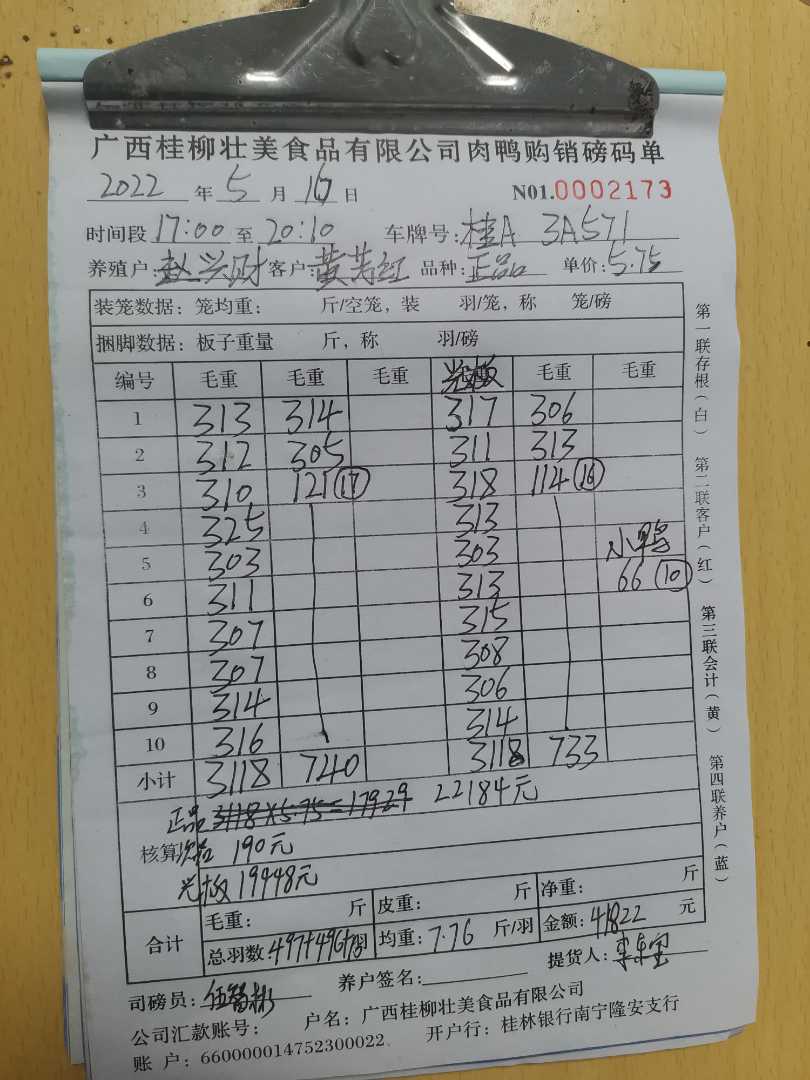 广西桂柳壮美食品有限公司肉鸭购销磅码单
2022 年 5 月 16 日 N01.0002173
时间段 17:00 至 20:10 车牌号: 桂A 3A571
养殖户: 赵兴财 客户: 黄芳红 品种: 正品 单价: 5.75
装笼数据: 笼均重: 斤/空笼, 装 羽/笼, 称 笼/磅
捆脚数据: 板子重量 斤, 称 羽/磅
编号 毛重 毛重 毛重 光板 毛重 毛重
1 313 314 317 306
2 312 305 311 313
3 310 121 (17) 318 114 (16)
4 325 313
5 303 303 小鸭
6 311 313 66 (10)
7 307 315
8 307 308
9 314 306
10 316 314
小计 3118 740 3118 733
正品 3118×5.75=17929 22184元
核算 次品 190元
光板 19448元
合计 毛重: 斤 皮重: 斤 净重: 斤
总羽数 497+496+ 羽 均重: 7.76 斤/羽 金额: 41822 元
司磅员: 养户签名: 提货人:
公司汇款账号: 户名: 广西桂柳壮美食品有限公司
账 户: 660000014752300022 开户行: 桂林银行南宁隆安支行
第一联存根(白) 第二联客户(红) 第三联会计(黄) 第四联养户(蓝)